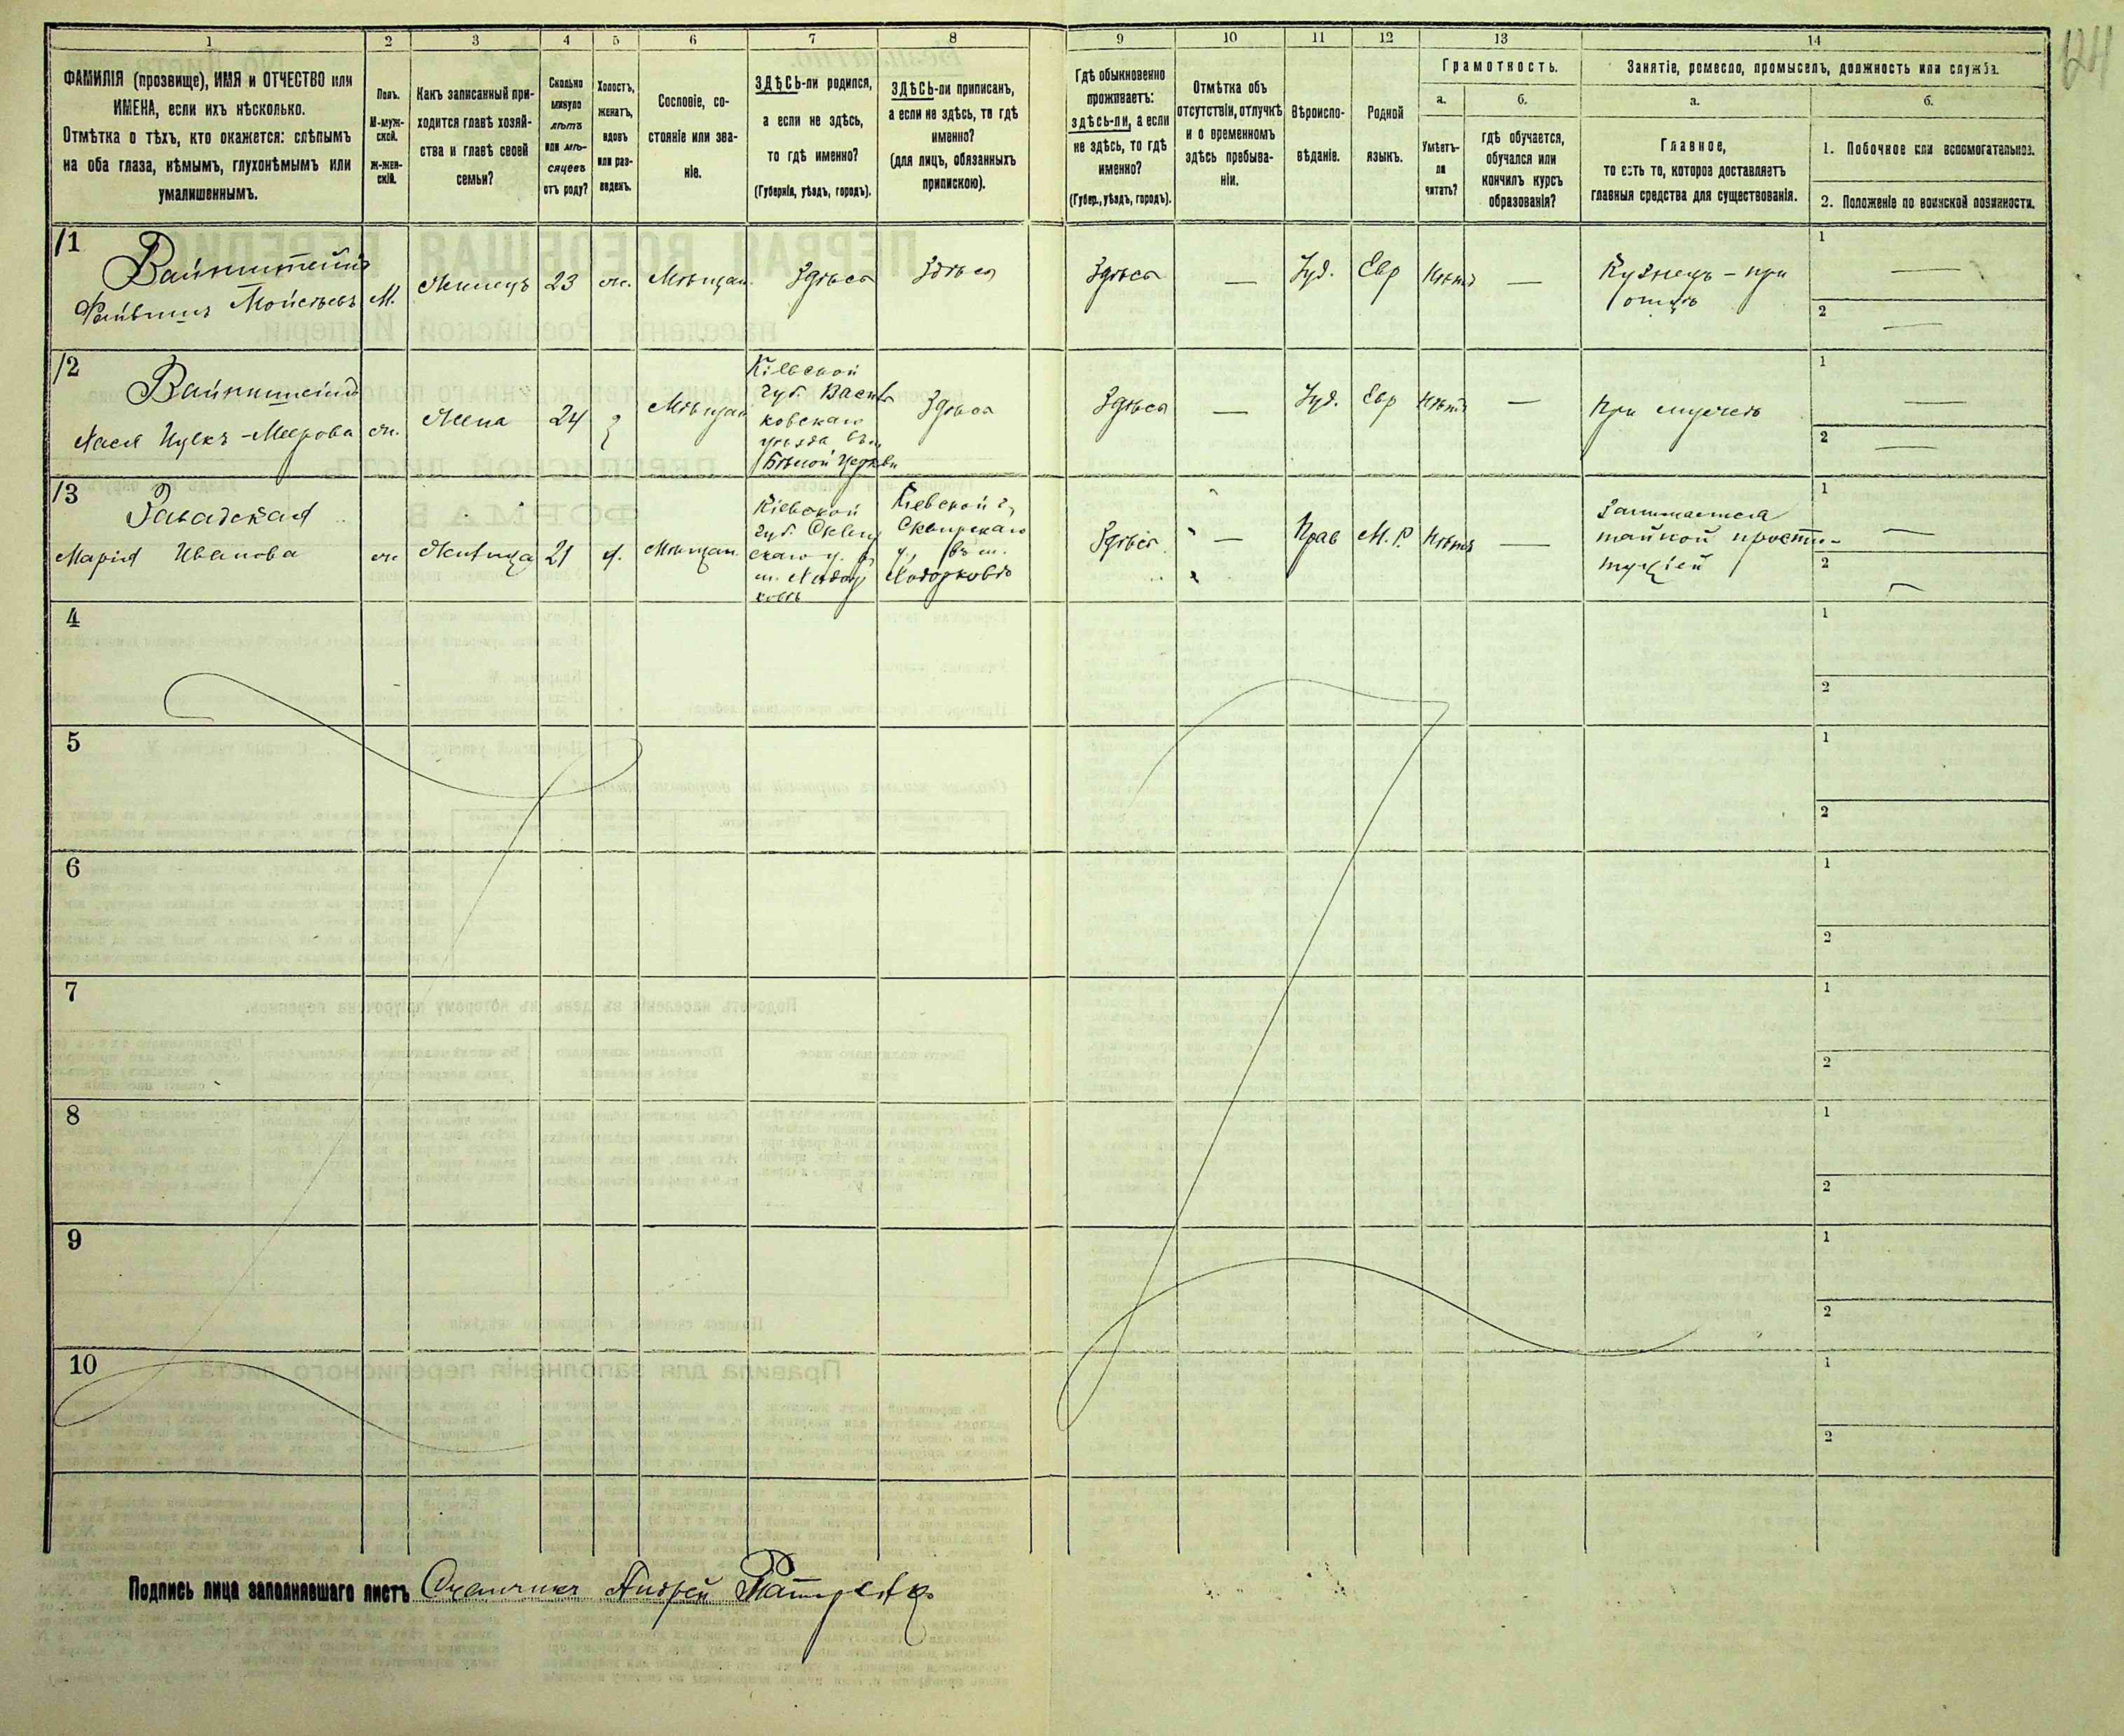 124
1 2 3 4 5 6 7 8 9 10 11 12 13 14
ФАМИЛІЯ (прозвище), ИМЯ и ОТЧЕСТВО или
ИМЕНА, если ихъ нѣсколько.
Отмѣтка о тѣхъ, кто окажется: слѣпымъ
на оба глаза, нѣмымъ, глухонѣмымъ или
умалишеннымъ.
Полъ.
М-муж-
ской.
Ж-жен-
скій.
Какъ записанный при-
ходится главѣ хозяй-
ства и главѣ своей
семьи?
Сколько
минуло
лѣтъ
или мѣ-
сяцевъ
отъ роду?
Холостъ,
женатъ,
вдовъ
или раз-
веденъ.
Сословіе, со-
стояніе или зва-
ніе.
ЗДѢСЬ-ли родился,
а если не здѣсь,
то гдѣ именно?
(Губернія, уѣздъ, городъ).
ЗДѢСЬ-ли приписанъ,
а если не здѣсь, то гдѣ
именно?
(для лицъ, обязанныхъ
припискою).
Гдѣ обыкновенно
проживаетъ:
здѣсь-ли, а если
не здѣсь, то гдѣ
именно?
(Губер., уѣздъ, городъ).
Отмѣтка объ
отсутствіи, отлучкѣ
и о временномъ
здѣсь пребыва-
ніи.
Вѣроиспо-
вѣданіе.
Родной
языкъ.
Грамотность.
а.
Умѣетъ-
ли
читать?
б.
гдѣ обучается,
обучался или
кончилъ курсъ
образованія?
Занятіе, ремесло, промыселъ, должность или служба.
а.
Главное,
то есть то, которое доставляетъ
главныя средства для существованія.
б.
1. Побочное или вспомогательное.
2. Положеніе по воинской повинности.
1
Вайнштейнъ
Файвишъ Мойсѣевъ
М.
Жилецъ
23
ж.
Мѣщан.
Здѣсь
Здѣсь
Здѣсь
—
Іуд.
Евр
Нѣтъ
—
Кузнецъ - при
отцѣ
1 —
2 —
2
Вайнштейнъ
Хася Ицекъ-Меерова
ж.
Жена
24
З
Мѣщан
Кіевской
губ. Василь
ковскаго
уѣзда въ м.
Бѣлой Церкви
Здѣсь
Здѣсь
—
Іуд.
Евр
Нѣтъ
—
При мужѣ
1 —
2 —
3
Завадская
Марія Иванова
ж.
Жилица
21
д.
Мѣщан.
Кіевской
губ. Сквир
скаго у. въ
м. Ходор
ковѣ
Кіевской г.
Сквирскаго
у., въ м.
Ходорковѣ
Здѣсь
—
Прав
М. Р.
Нѣтъ
—
Занимается
тайной прости-
туціей
1 —
2 —
4
1
2
5
1
2
6
1
2
7
1
2
8
1
2
9
1
2
10
1
2
Подпись лица заполнявшаго листъ Счетчикъ Андрей